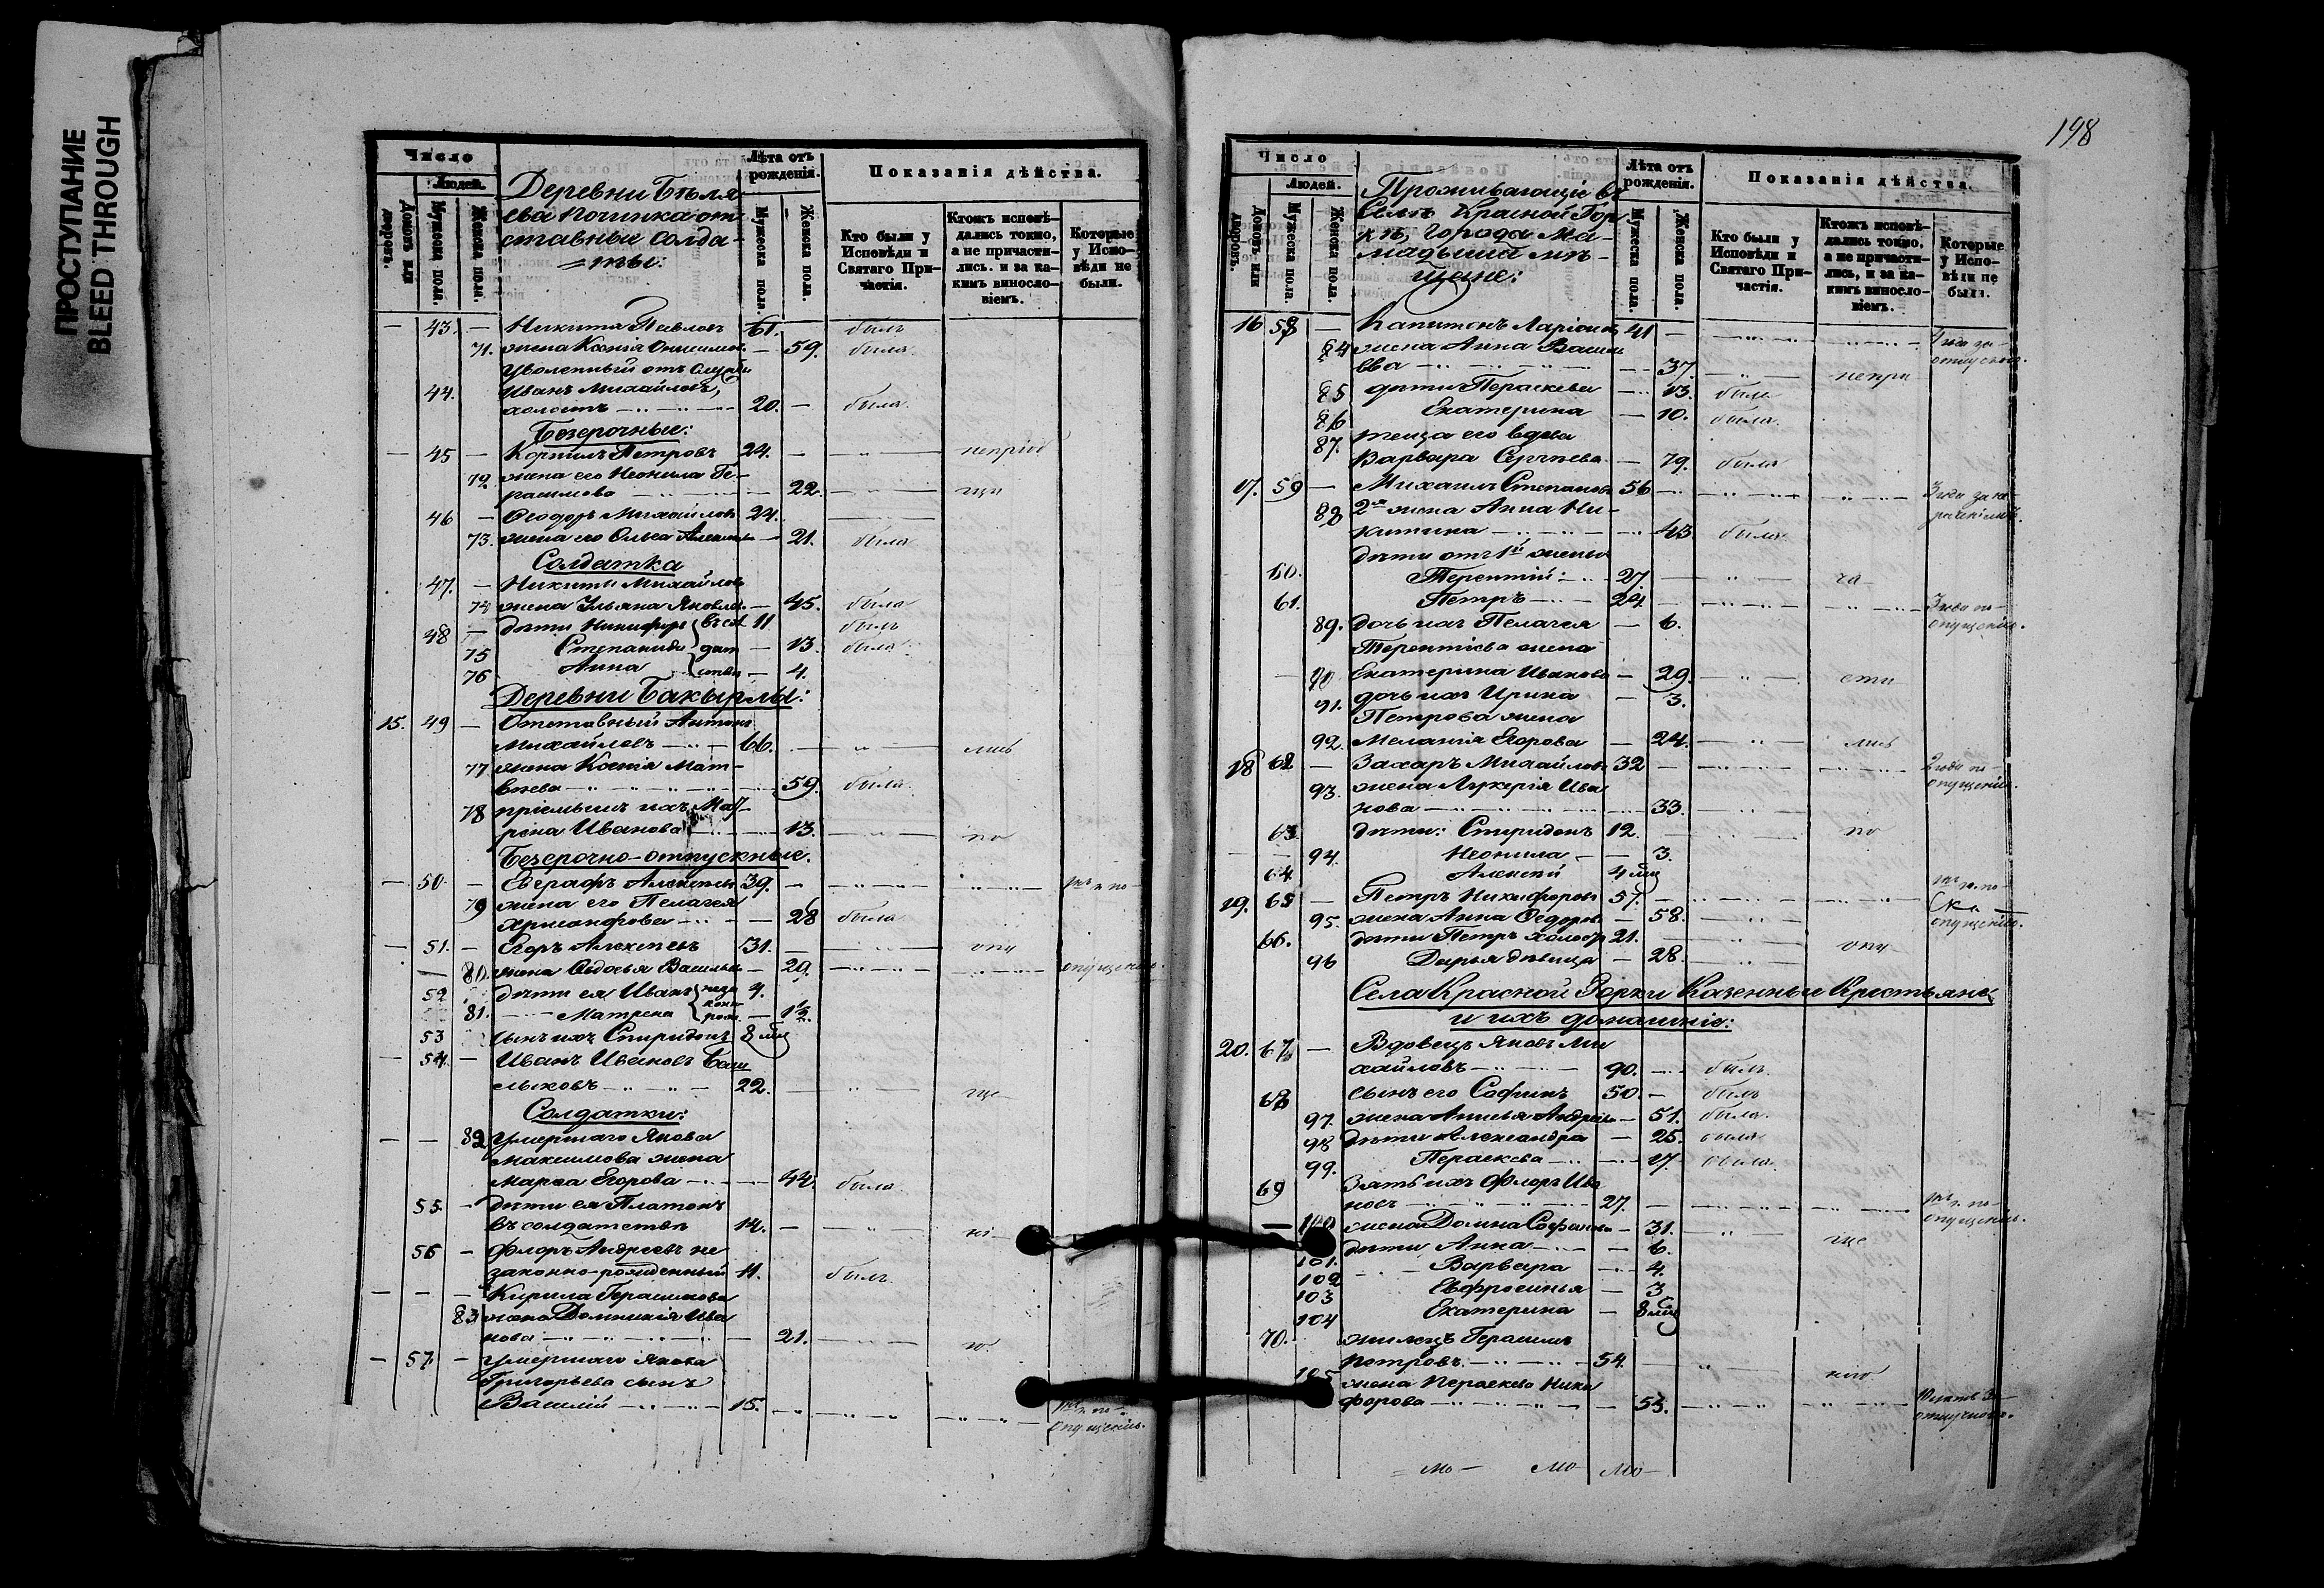 ПРОСТУПАНИЕ
BLEED THROUGH
Число
Людей.
Домовъ или дворовъ.
Мужеска пола.
Женска пола.
Деревни Бѣля
ева Починка от
ставные солда-
=ты:
Лѣта отъ рожденія.
Мужеска пола.
Женска пола.
Показанія дѣйства.
Кто были у Исповѣди и Святаго Причастія.
Ктожъ исповѣдались токмо, а не причастились. и за какимъ винословіемъ.
Которые у Исповѣди не были.
— 43. — Никита Павловъ 61. былъ
71. жена Ксенія — 59. была
Уволенный отъ службы
44. Иванъ Михайловъ,
холостъ 20. — была
Безсрочные:
— 45 — Корнилъ Петровъ 24. —
72. жена его Неонила Ге-
расимова 22.
46 — Ѳеодоръ Михайловъ 24.
73. жена его Ольга 21. была
Солдатка
47. — Никиты Михайлова
74 жена Ульяна Яковлева — 45. была
48 — дѣти Никифоръ 11 былъ
75 Степанида — 13. была
76 Анна — 4.
Деревни Бакырлы:
15. 49 — Отставный Антонъ
Михайловъ 66. лись
77 жена Ксенія Мат-
вѣева 59. была
78 пріемышъ ихъ Мат-
рена Иванова 13. по
Безсрочно-отпускные.
— 50. — Евграфъ Алексѣевъ 39. —
79 жена его Пелагея
Хрисанфова — 28 была
— 51. — Егоръ Алексѣевъ 31. — опу
80. жена Овдотья Васильева — 29. опущенію
52 дѣти ея Иванъ 4.
81. Матрена — 13.
53 сынъ ихъ Спиридонъ 8
— 54. — Иванъ Ивановъ Баш
лыковъ 22. ще
Солдатки:
— — 82 Умершаго Якова
Максимова жена
Марѳа Егорова 44. была
55. — дѣти ея Платонъ
въ солдатствѣ 14. —
56 — Флоръ Андреевъ не
законно-рожденный 11. былъ
— — — Кирила Герасимова
83 жена Домникія Ива
нова 21.
— 57. — Умершаго Якова
Григорьева сынъ
Василій 15.
опущенію.
198
Число
Людей.
Домовъ или дворовъ.
Мужеска пола.
Женска пола.
Проживающіе въ
Селѣ Красной Гор
кѣ, города Ма-
мадыша мѣ-
щане:
Лѣта отъ рожденія.
Мужеска пола.
Женска пола.
Показанія дѣйства.
Кто были у Исповѣди и Святаго Причастія.
Ктожъ исповѣдались токмо, а не причастились, и за какимъ винословіемъ.
Которые у Исповѣди не были.
16 58 — Капитонъ Ларіоновъ 41 —
84 жена Анна Василь
ева 37. непри
85 дѣти Параскева 13. была
86 Екатерина — 10. была
87. теща его вдова
Варвара Сергѣева — 79. была
17. 59 — Михаилъ Степановъ 56 —
88 2я жена Анна Ни-
китина 43 была
дѣти отъ 1й жены
60. Терентій: 27.
61. Петръ 24.
опущенію.
89. дочь ихъ Пелагея — 6.
Терентіева жена
90 Екатерина Иванова — 29. сти
91. дочь ихъ Ирина — 3.
Петрова жена
92. Меланія Егорова — 24. лись
18 62 — Захаръ Михайловъ 32 —
93. жена Лукерія Ива
нова 33.
опущенію.
63 дѣти: Спиридонъ 12. по
94. Неонила — 3.
64 Алексѣй 4
19. 65 — Петръ Никифоровъ 57.
95. жена Анна Ѳедорова — 58.
опущенію.
66. дѣти Петръ холостъ 21. опу
96 Дарья дѣвица — 28.
Села Красной Горки Казенные Крестьяне
и ихъ домашніе:
20. 67 — Вдовецъ Яковъ Ми
хайловъ 90. былъ
68 сынъ его Софонъ 50. — былъ
97. жена Анисья Андреева — 51. была
98 дѣти Александра — 25. была
99. Параскева 17. была
69 Зять ихъ Флоръ Ива
новъ 27.
опущенію.
100 жена Домна Софонова — 31.
101. дѣти Анна — 6. ще
102 Варвара 4.
103 Евфросинья — 3
104 Екатерина — 8
70. жилецъ Герасимъ
Петровъ 54. нію
105 жена Параскева Ники
форова 53.
= мо — мо мо —